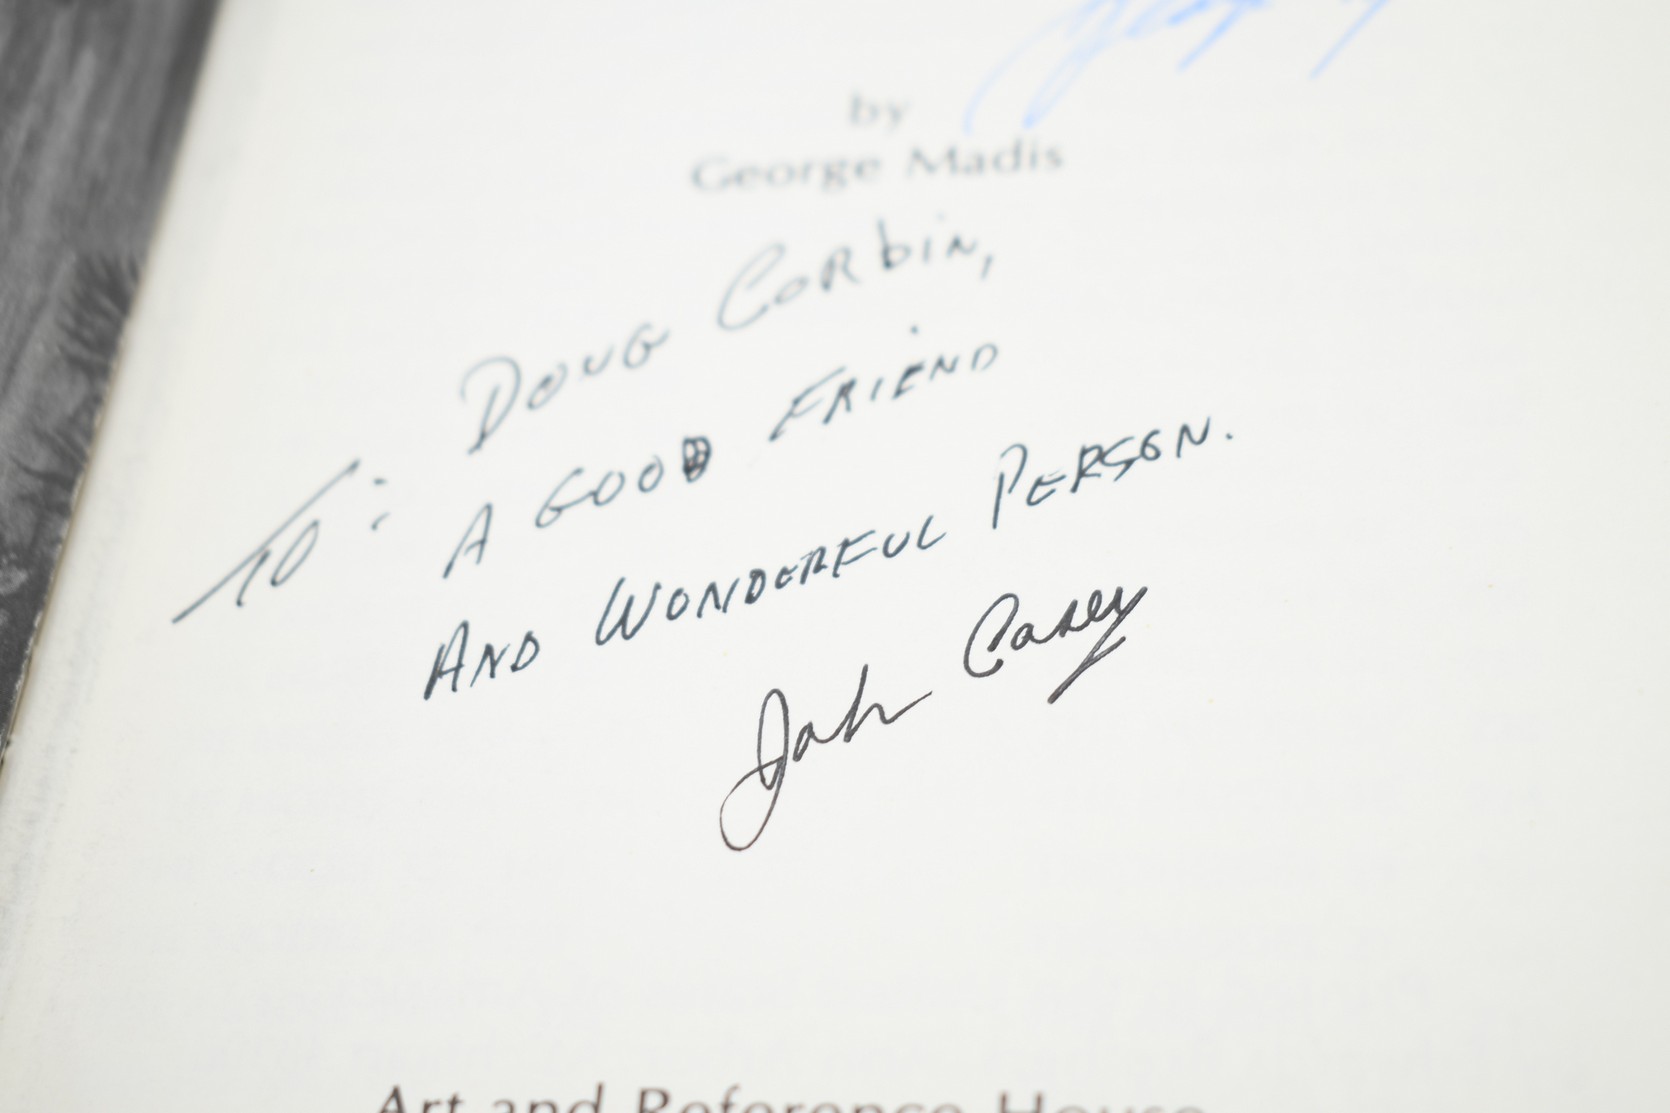 by
George Madis
To: Doug Corbin,
A GOOD FRIEND
AND WONDERFUL PERSON.
John Casey
Art and Reference House